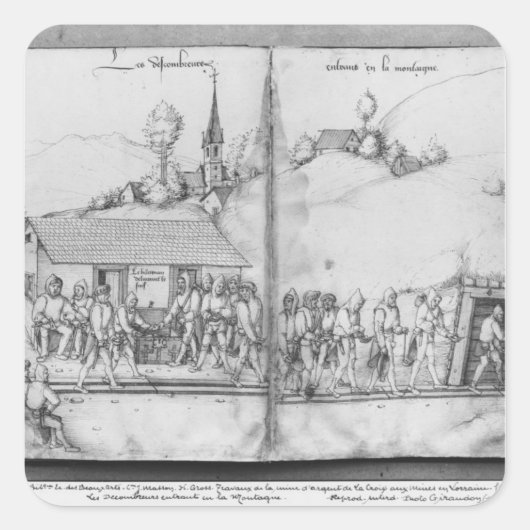 Les descombreurs entrans en la montaigne.
Le hutman
delivrant le
suif
Bibl. Ec des Beaux Arts - Cn J. Masson. H. Gross. Travaux de la mine d'argent de La Croix aux Mines en Lorraine.
Les Decombreurs entrants en la Montagne. Reprod. interd. Photo Giraudon